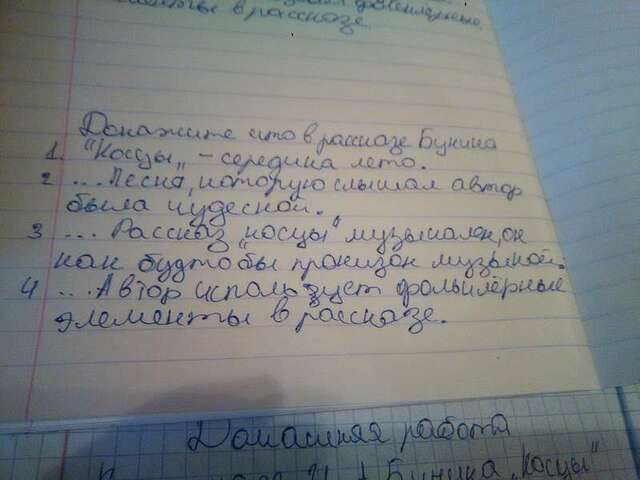 элементы в рассказе
Докажите что в рассказе Бунина
1. "Косцы" - середина лето.
2 ... Песня, которую слышал автор
была чудесной.
3 ... Рассказ "косцы" музыкален, он
как будто бы пронизон музыкой.
4 ... Автор использует фольклёрные
элементы в рассказе.
Домашняя работа
Бунина "Косцы"